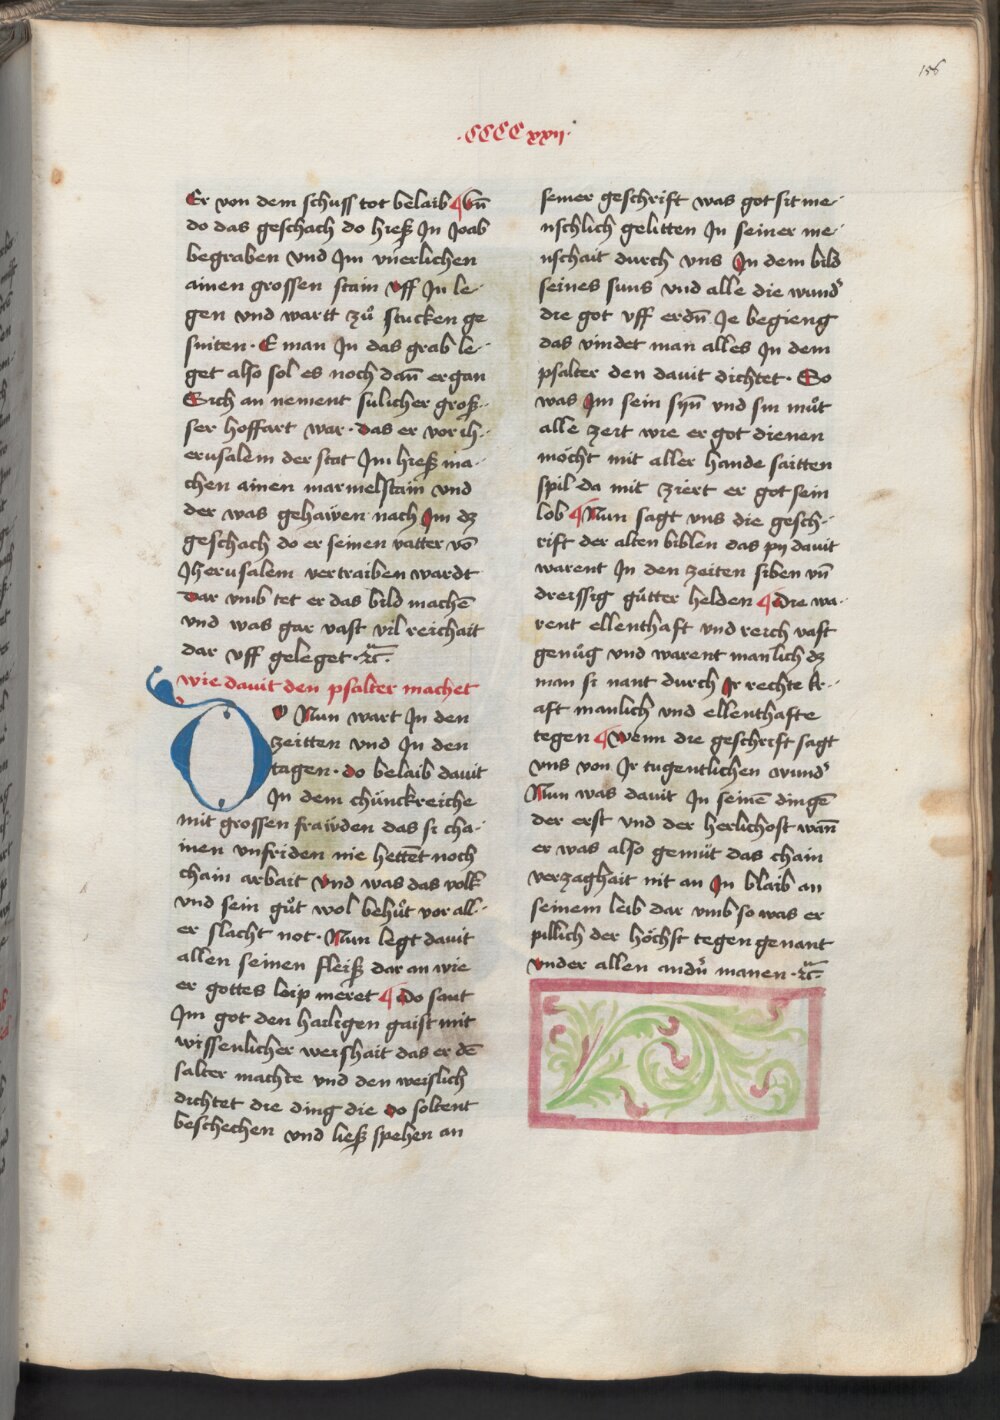 156
·CCCCxxii·
Er von dem schuss tot belaib ¶ Vn̄
do das geschach do hieß Jn Joab
begraben vnd Jm vnerlichen
ainen grossen stain vff Jn le-
gen vnd wartt zů stucken ge
sniten· E man Jn das grab le-
get also sol es noch dan̄ ergan
Sich an nement sulicher groß-
ser hoffart war· das er vor ih-
erusalem der stat Jm hieß ma-
chen ainen marmelstain vnd
der was gehawen nach Jm dz
geschach do er seinen vatter vō
Jherusalem vertraiben wardt
Dar vmb tet er das bild machē
vnd was gar vast vil reichait
dar vff geleget· ꝛc̄·
wie dauit den psalter machet
DO Nun wart Jn den
zeitten vnd Jn den
tagen· do belaib dauit
Jn dem chünckreiche
mit grossen frawden das si cha-
inen vnfriden nie hettēt noch
chain arbait Vnd was das volk
vnd sein gůt wol behůt vor all-
er slacht not· Nun legt dauit
allen seinen fleiß dar an wie
er gottes leip meret ¶ Do sant
Jm got den hailigen gaist mit
wissenlicher weishait das er dē
salter machte vnd den weislich
dichtet die ding die do soltent
beschechen vnd ließ spehen an
seiner geschrift was got sit me-
nschlich gelitten Jn seiner me-
nschait durch vns Jn dem bild
seines suns vnd alle die wund᾽
die got vff erdn̄ Je begieng
das vindet man alles Jn dem
psalter den dauit dichtet· So
was Jm sein syn̄ vnd sin můt
alle zeit wie er got dienen
möcht mit aller hande saitten
spil da mit ziert er got sein
lob ¶ Nun sagt vns die gesch-
rift der alten biblen das py dauit
warent Jn den zeiten siben vn̄
dreissig gůtter helden ¶ Die wa-
rent ellenthaft vnd reich vast
genůg vnd warent manlich dz
man si nant durch Jr rechte kr-
aft manlich vnd ellenthafte
tegen ¶ Wenn die geschrift sagt
vns von Jr tugentlichen wund᾽
Nun was dauit Jn seinē dingē
der erst vnd der herlichost wan̄
er was also gemůt das chain
verzaghait nit an Jn blaib an
seinem leib dar vmb so was er
pillich der höchst tegen genant
Vnder allen andn̄ manen· ꝛc̄·